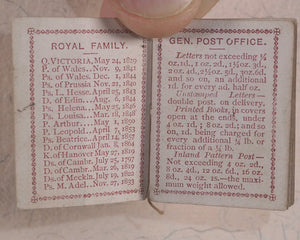 ROYAL FAMILY.
Q. VICTORIA, May 24, 1819
P. of Wales, Nov. 9, 1841
Ps. of Wales, Dec. 1, 1844
Ps. of Prussia, Nov. 21, 1840
Ps. L. Hesse, April 25, 1843
D. of Edin., Aug. 6, 1844
Ps. Helena, May 25, 1846
Ps. Louisa, Mar. 18, 1848
P. Arthur, May 1, 1850
P. Leopold, April 7, 1853
Ps. Beatrice, April 14, 1857
D. of Cornwall Jan. 8, 1864
K. of Hanover May 27, 1819
Ds. of Camb. July 25, 1797
D. of Camb. Mar. 26, 1819
Ds. of Meckln. July 19, 1822
Ps. M. Adel., Nov. 27, 1833
GEN. POST OFFICE.
Letters not exceeding ½
oz. rd., 1 oz. 1d.,
2 oz. 2d., 3d.
and so on, an additional
rd. for every ad. half oz.
Unstamped Letters—
double post. on delivery.
Printed Books, in covers
open at the ends, under
4 oz. rd.; 8 oz. 2d.; and so
on, 1d. being charged for
every additional ¼ lb. or
fraction of a ¼ lb.
Inland Pattern Post—
Not exceeding 4 oz. 2d.,
8 oz. 4d., 12 oz. 6d., 16 oz.
8d., 24 oz. 1s.—the maxi-
mum weight allowed.